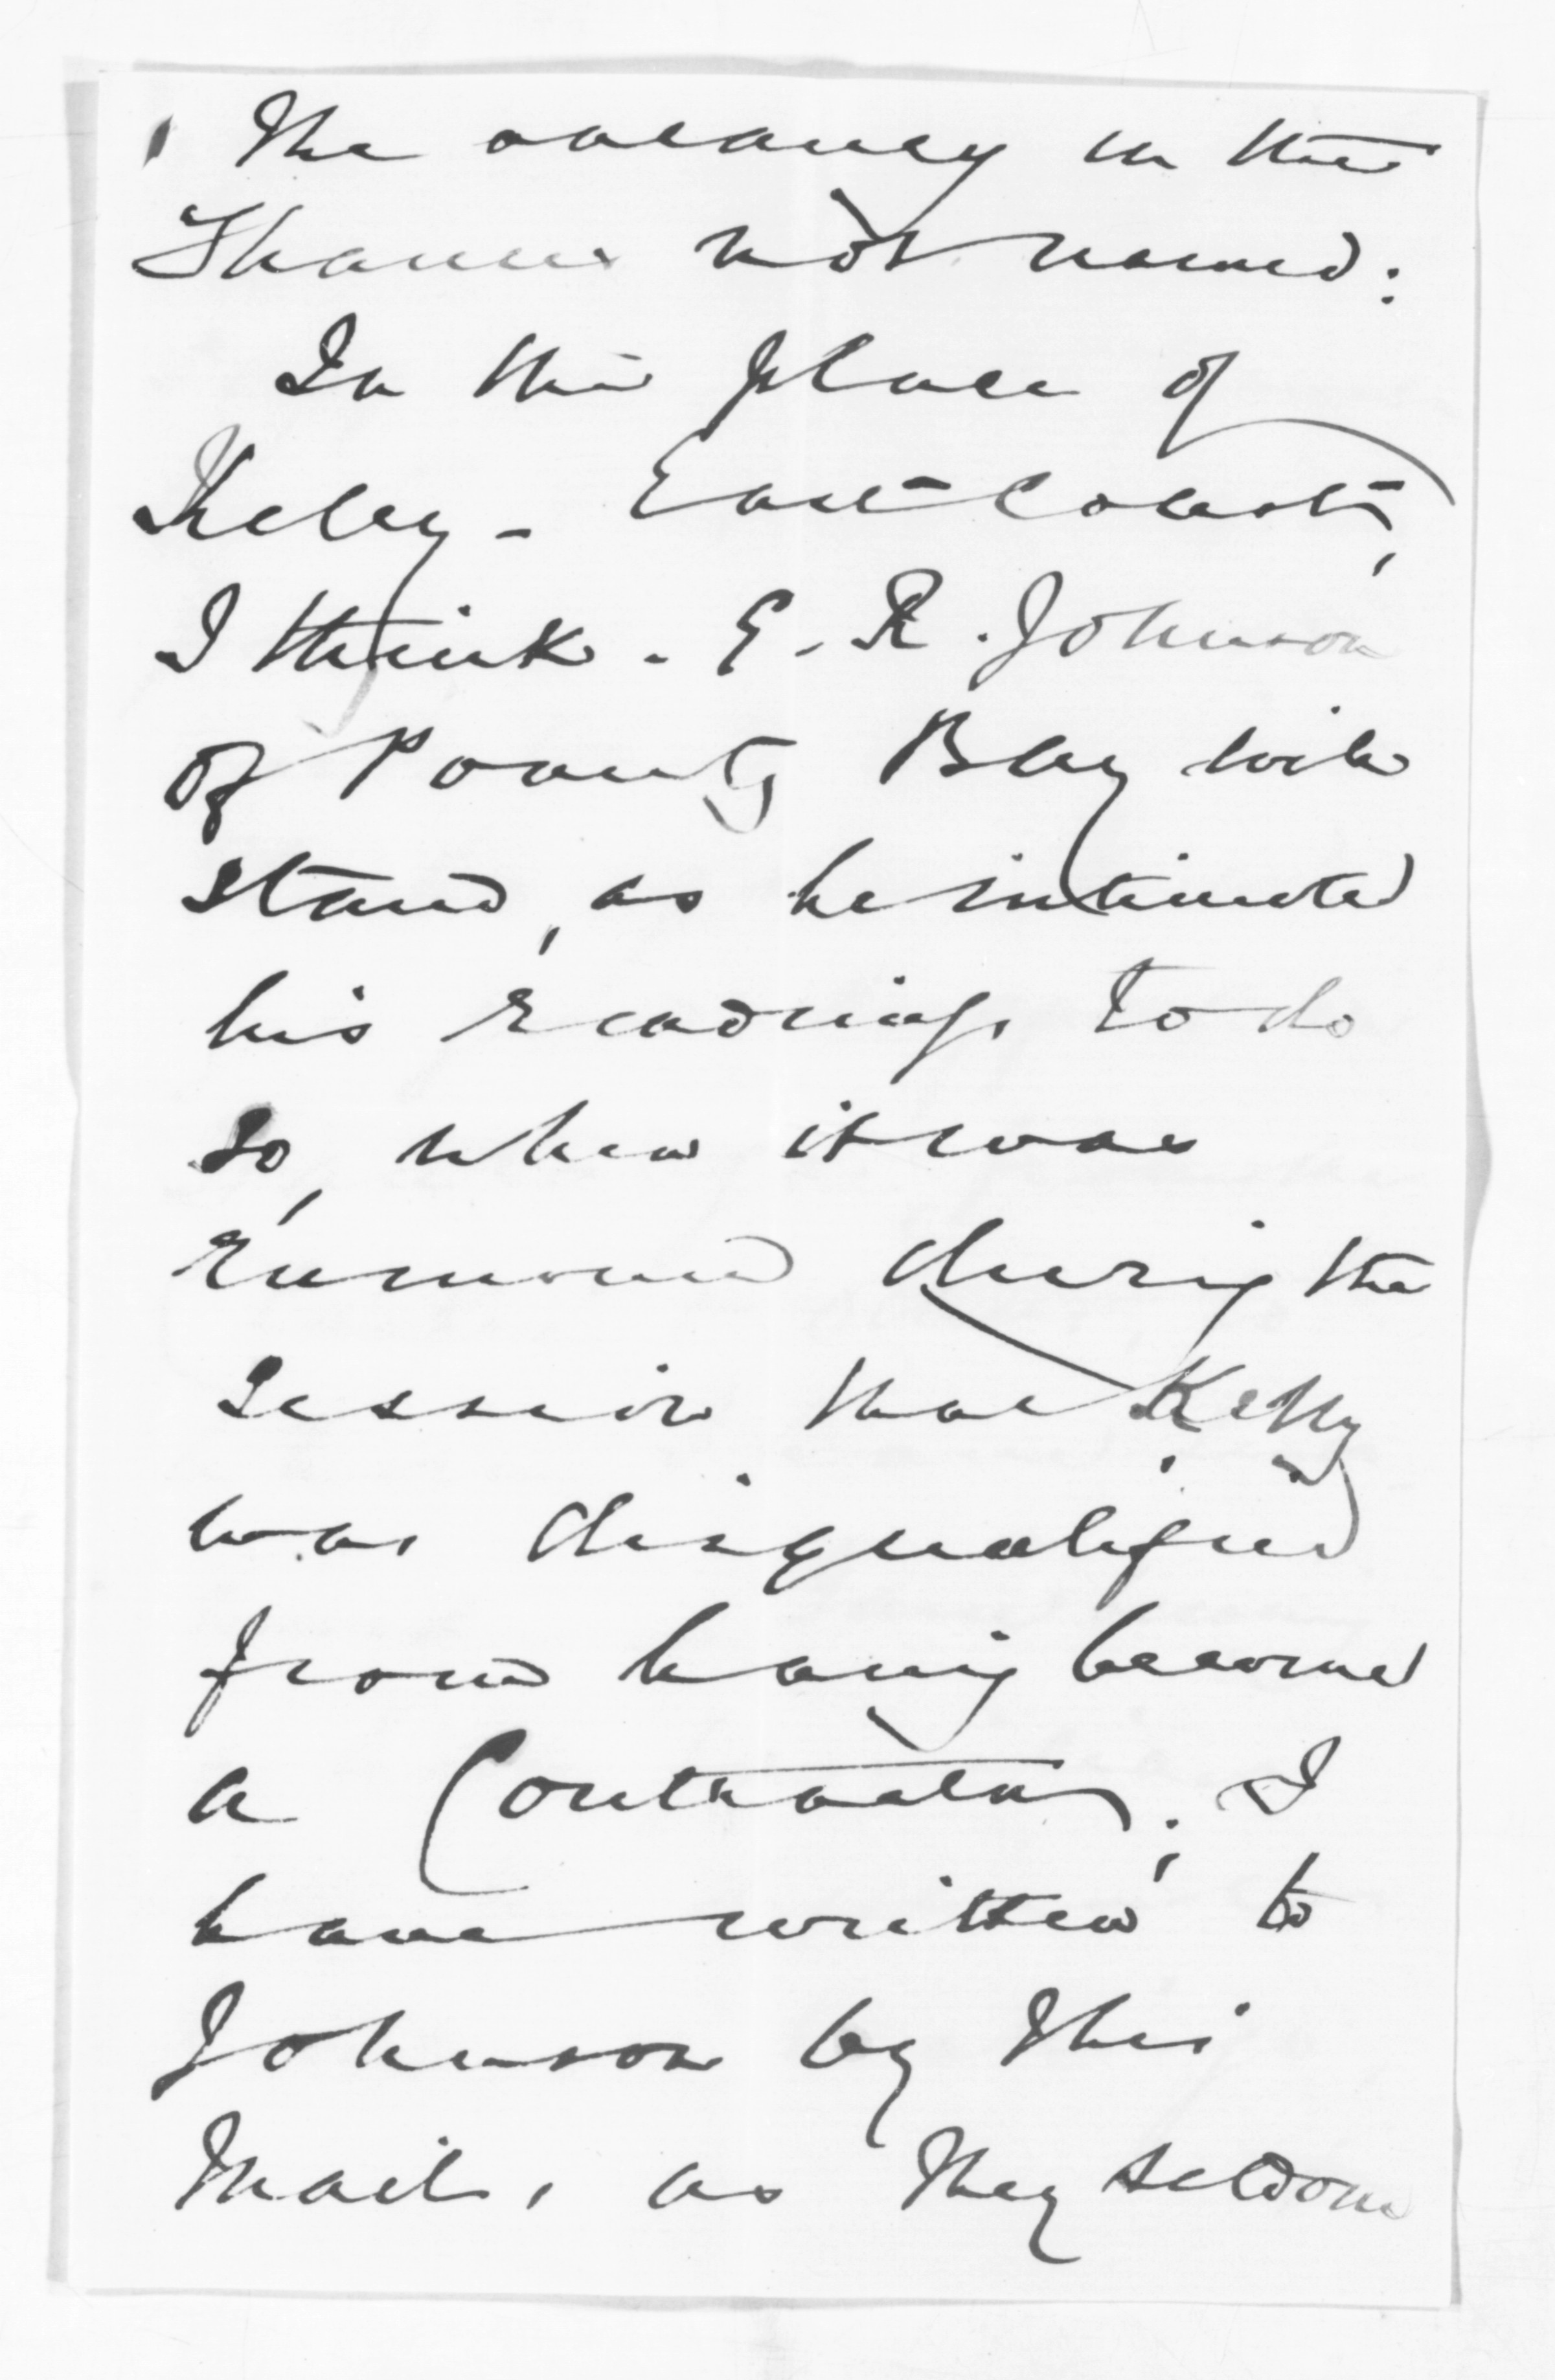 The vacancy in the
Thames not named:
In the place of
Kelly - East Coast,
I think. E. R. Johnson
of Poverty Bay will
stand, as he intimated
his readiness to do
so, when it was
rumoured during the
session that Kelly
was disqualified
from having become
a Contractor; I
have written to
Johnson by this
Mail, as they seldom